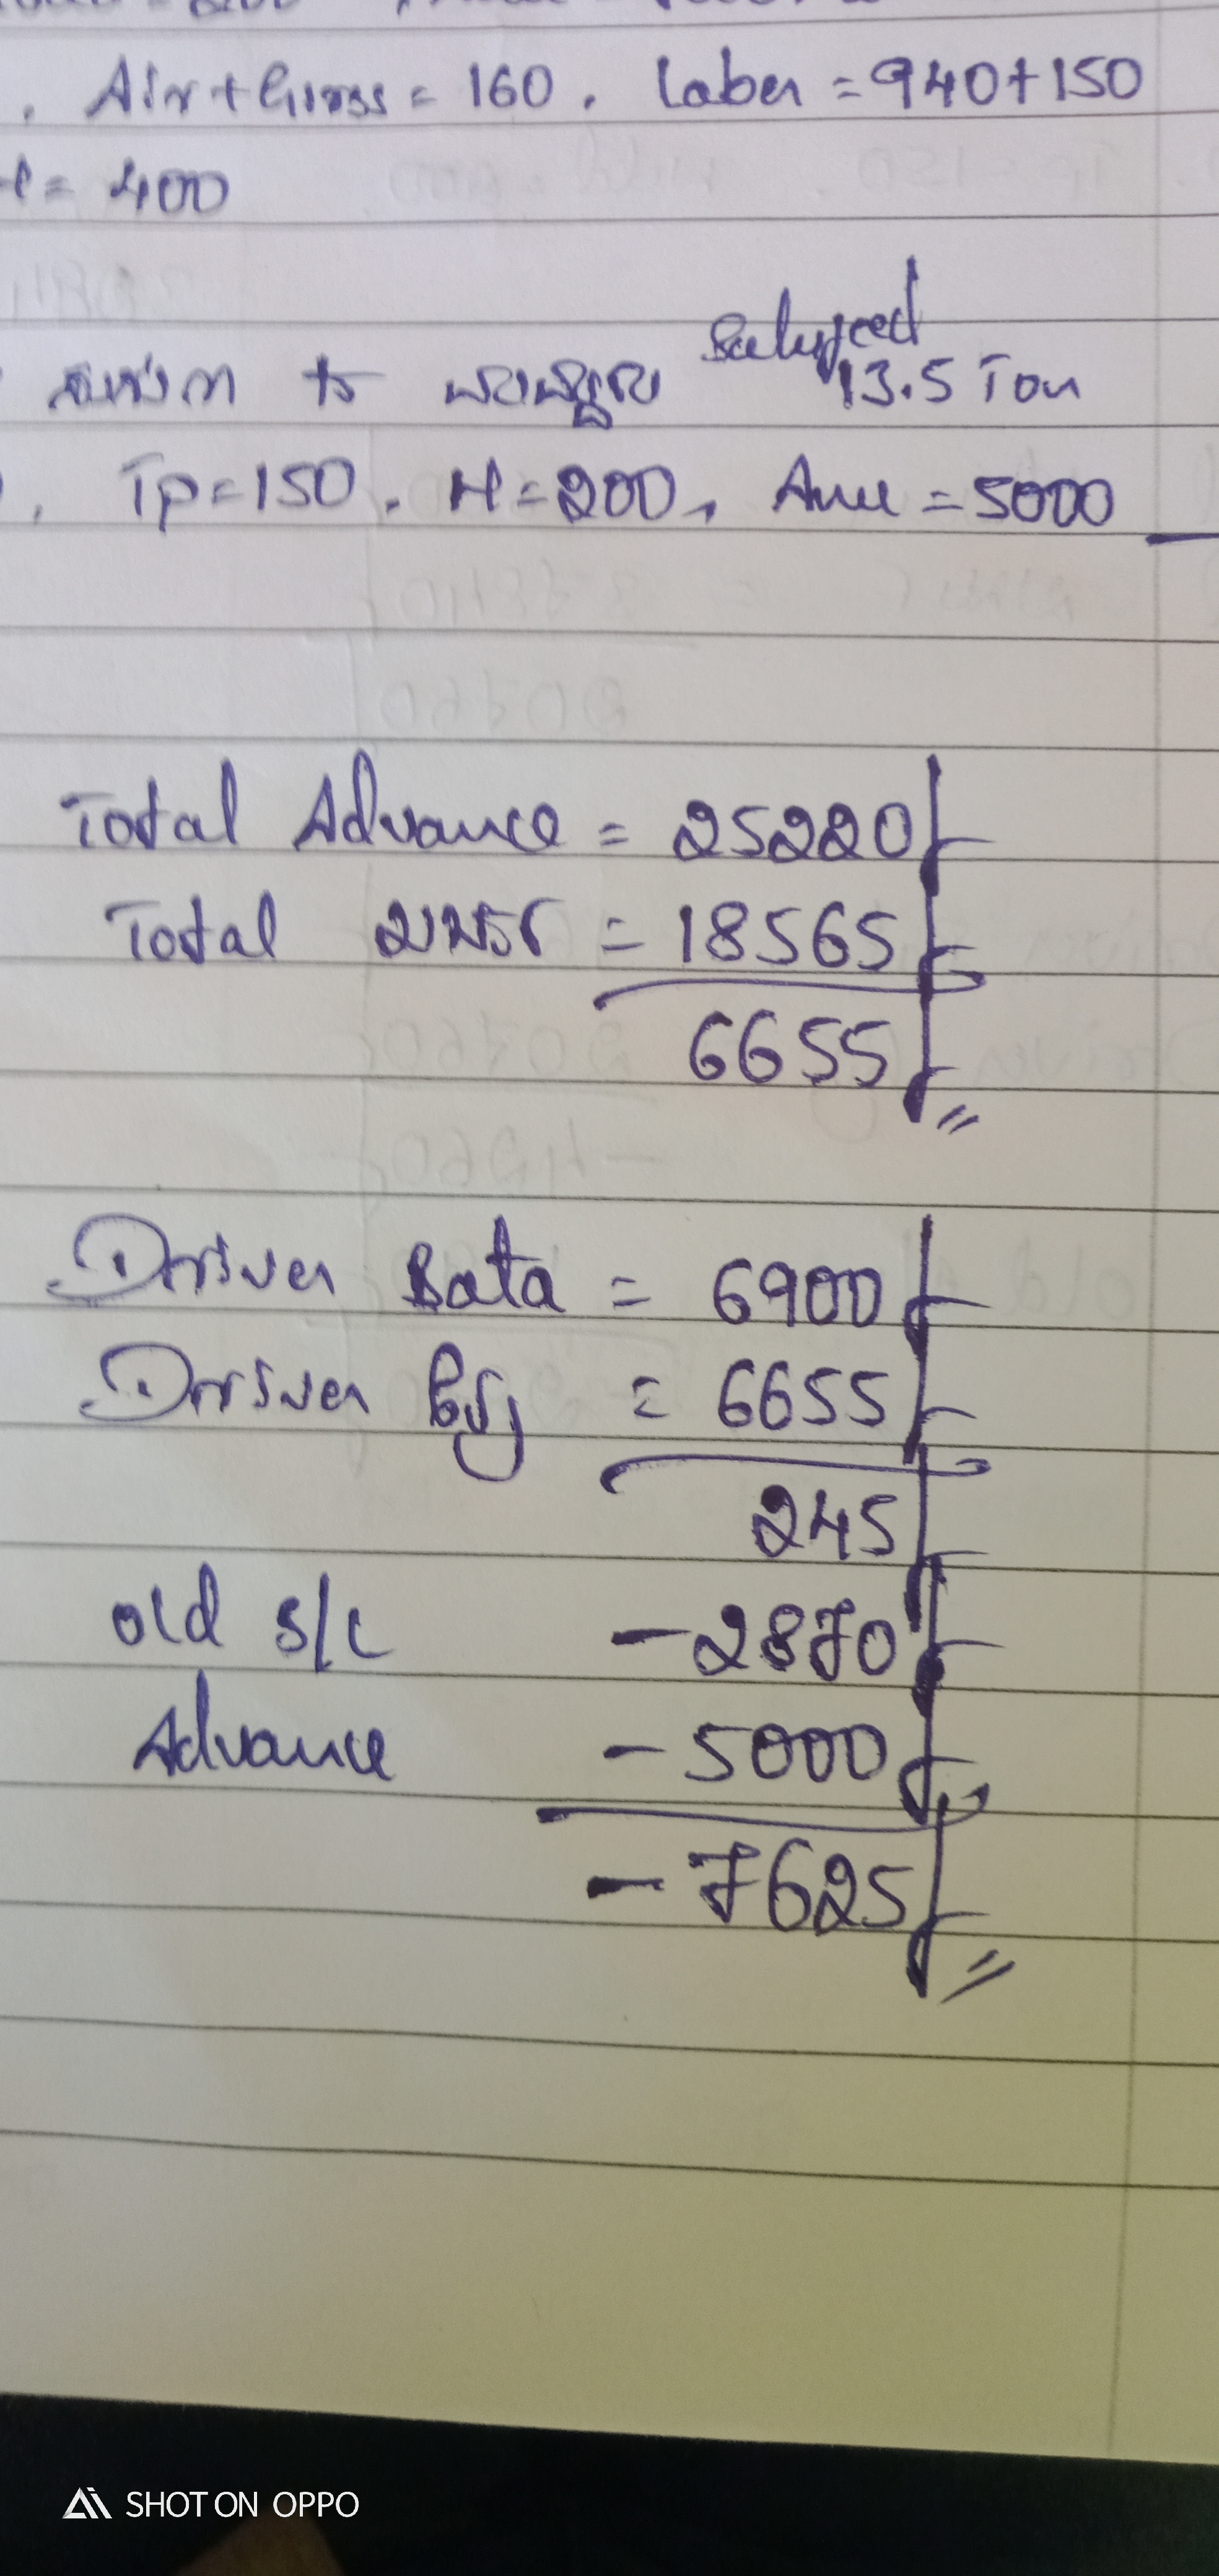 Air + Grass = 160. Laber = 940+150
= 400
to 13.5 Ton
Tp = 150. H = 200, = 5000
Total Advance = 25220
Total = 18565
6655
Driver Bata = 6900
Driver = 6655
245
old s/L -2870
Advance -5000
-7625
SHOT ON OPPO